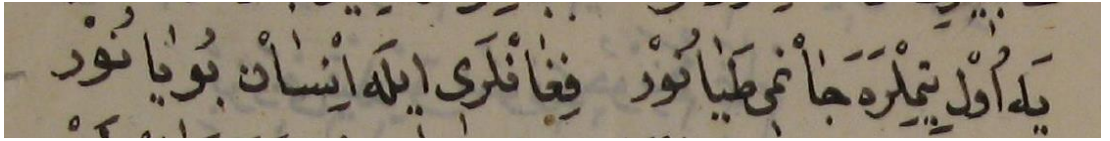 يَله اُوْل يتِمْلرَه جَانْمِى طَيَانُوْر فِغَانْلَرِى ايلَه اِنْسَانْ بُويَانُوْر